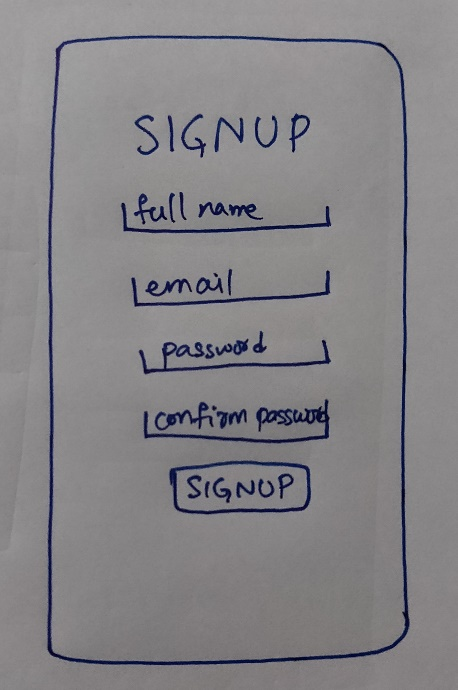 SIGNUP
full name
email
password
confirm password
SIGNUP